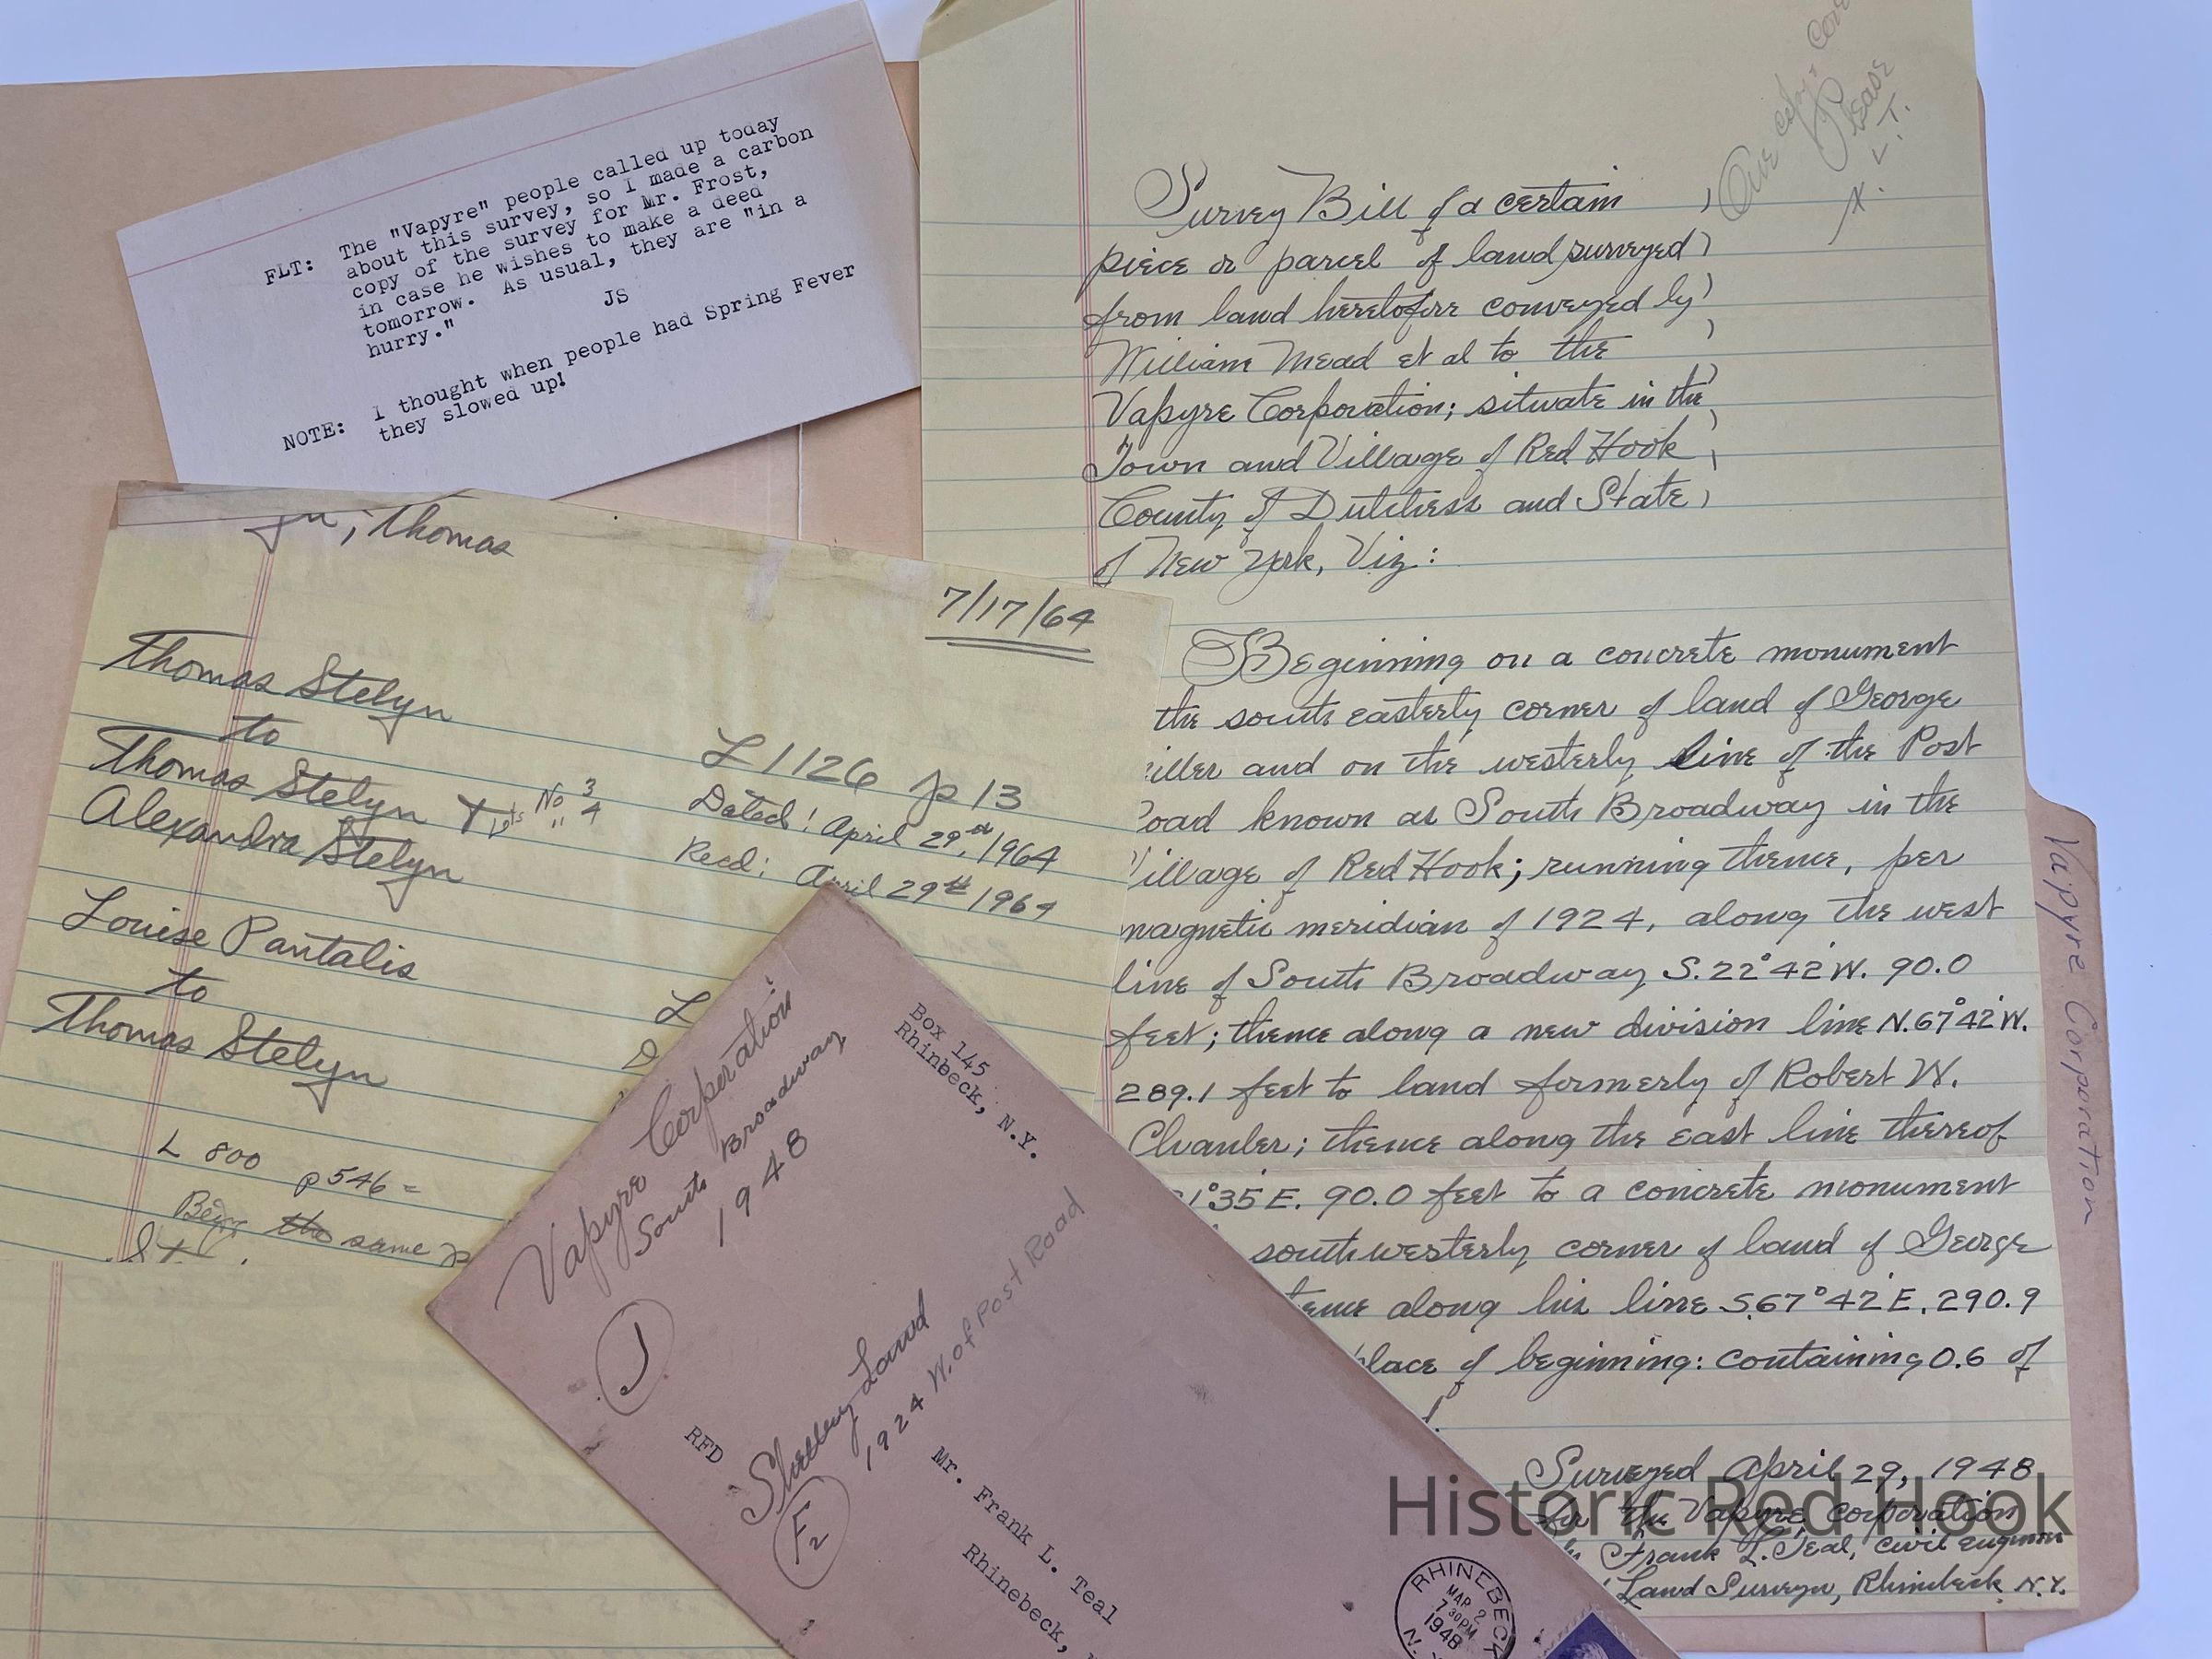 FLT: The "Vapyre" people called up today
about this survey, so I made a carbon
copy of the survey for Mr. Frost,
in case he wishes to make a deed
tomorrow. As usual, they are "in a
hurry."
JS
NOTE: I thought when people had Spring Fever
they slowed up!
One copy
Please
F.L.T.
Survey Bill of a certain
piece or parcel of land surveyed
from land heretofore conveyed by
William Mead et al to the
Vapyre Corporation; situate in the
Town and Village of Red Hook
County of Dutchess and State
of New York, Viz:
Beginning on a concrete monument
the south easterly corner of land of George
iller and on the westerly line of the Post
Road known as South Broadway in the
Village of Red Hook; running thence, per
magnetic meridian of 1924, along the west
line of South Broadway S. 22° 42' W. 90.0
feet; thence along a new division line N. 67° 42' W.
289.1 feet to land formerly of Robert W.
Chanler; thence along the east line thereof
1° 35' E. 90.0 feet to a concrete monument
southwesterly corner of land of George
along his line S. 67° 42' E. 290.9
place of beginning: containing 0.6 of
Surveyed April 29, 1948
for the Vapyre Corporation
by Frank L. Teal, Civil Engineer
Land Surveyor, Rhinebeck N.Y.
Vapyre Corporation
Thomas
7/17/64
Thomas Stelyn
to
Thomas Stelyn + Lots No 3
" 4
Alexandra Stelyn
L 1126 p 13
Dated: April 29th, 1964
Recd: April 29th 1964
Louise Pantalis
to
Thomas Stelyn
L
D
L 800 p 546 =
Being the same p
Vapyre Corporation
South Broadway
1948
1
Box 145
Rhinbeck, N.Y.
RFD
Shelley Land
1924 W. of Post Road
F2
Mr. Frank L. Teal
Rhinebeck,
RHINEBECK
MAR 2
7 30 PM
1948
N.Y.
Historic Red Hook